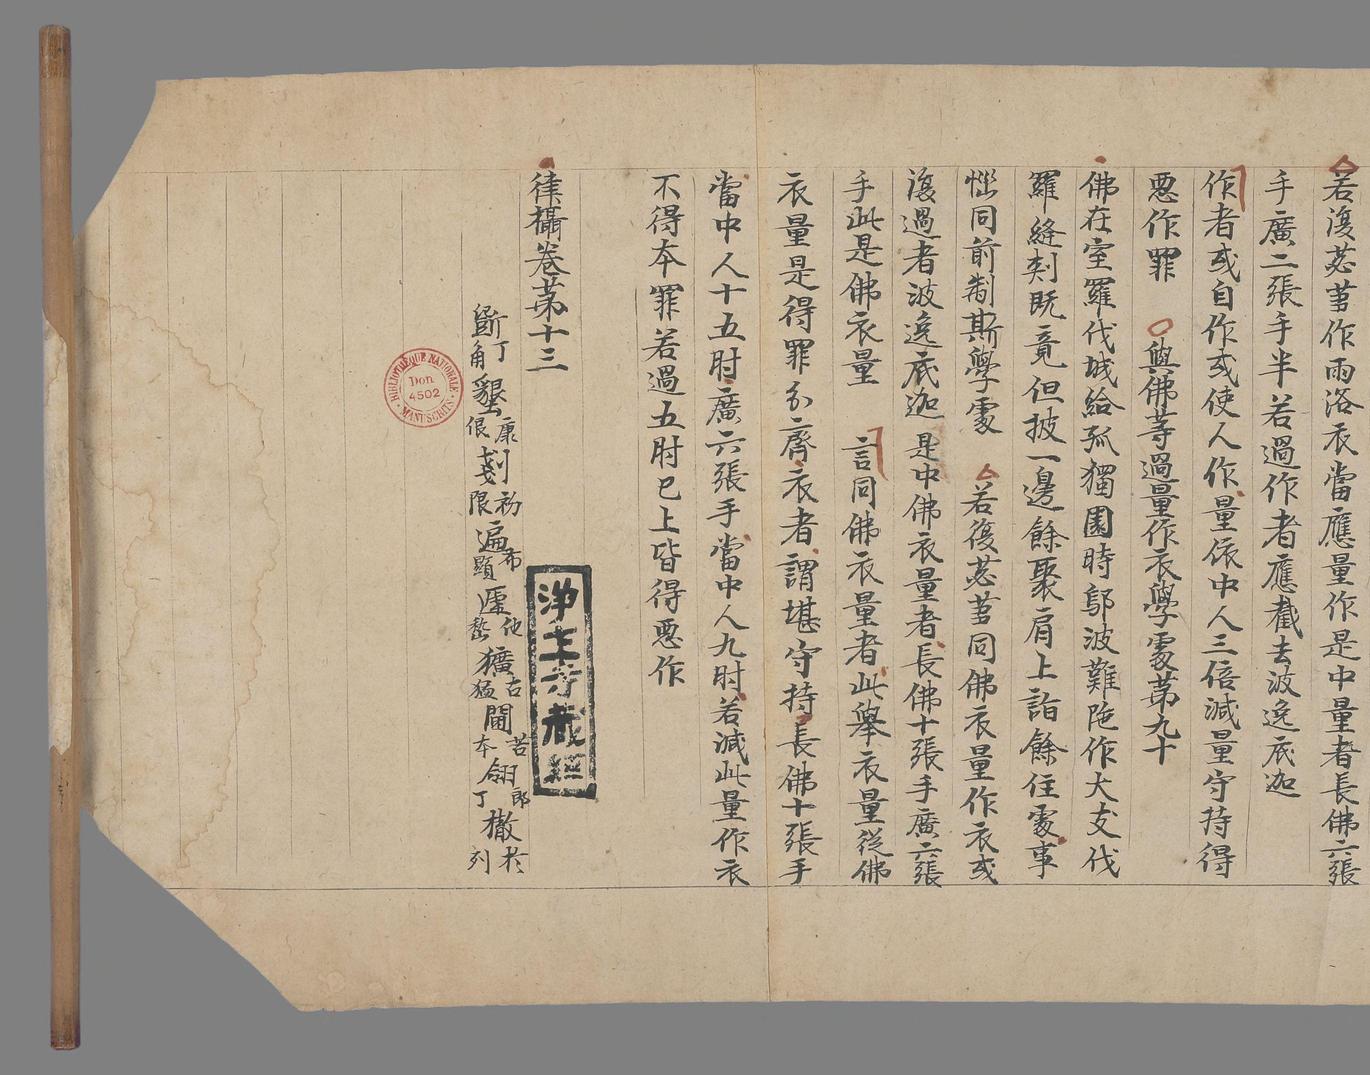 若復苾芻作雨浴衣當應量作是中量者長佛六張
手廣二張手半若過作者應截去波逸底迦
作者或自作或使人作量依中人三倍減量守持得
惡作罪 與佛等過量作衣學處苐九十
佛在室羅伐城給孤獨園時鄔波難陁作大支伐
羅縫刾既竟但披一邊餘聚肩上詣餘住處事
惱同前制斯學處 若復苾芻同佛衣量作衣或
復過者波逸底迦 是中佛衣量者長佛十張手廣六張
手此是佛衣量 言同佛衣量者此舉衣量從佛
衣量是得罪分齊衣者謂堪守持長佛十張手
當中人十五肘廣六張手當中人九肘若減此量作衣
不得本罪若過五肘已上皆得惡作
律攝卷苐十三
斵丁角墾康佷剗初限遍布顯㕓他䓕獷古猛閫苦本翎郎丁撤於列
淨土寺藏經
BIBLIOTHÈQUE NATIONALE
Don
4502
MANUSCRITS